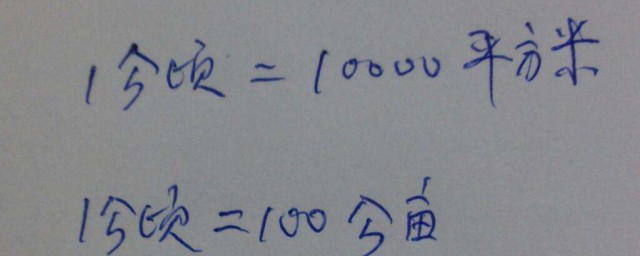 1公顷=10000平方米
1公顷=100公亩